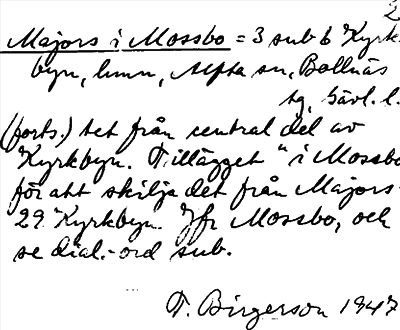 2
Majors i Mossbo = 3 sub 6 Kyrk-
byn, hmn, Alfta sn, Bollnäs
tg, Gävl. l.
(forts.) tet från central del av
Kyrkbyn. Tillägget "i Mossbo
för att skilja det från Majors
29 Kyrkbyn. Jfr Mossbo, och
se dial.-ord sub.
T. Birgerson 1947